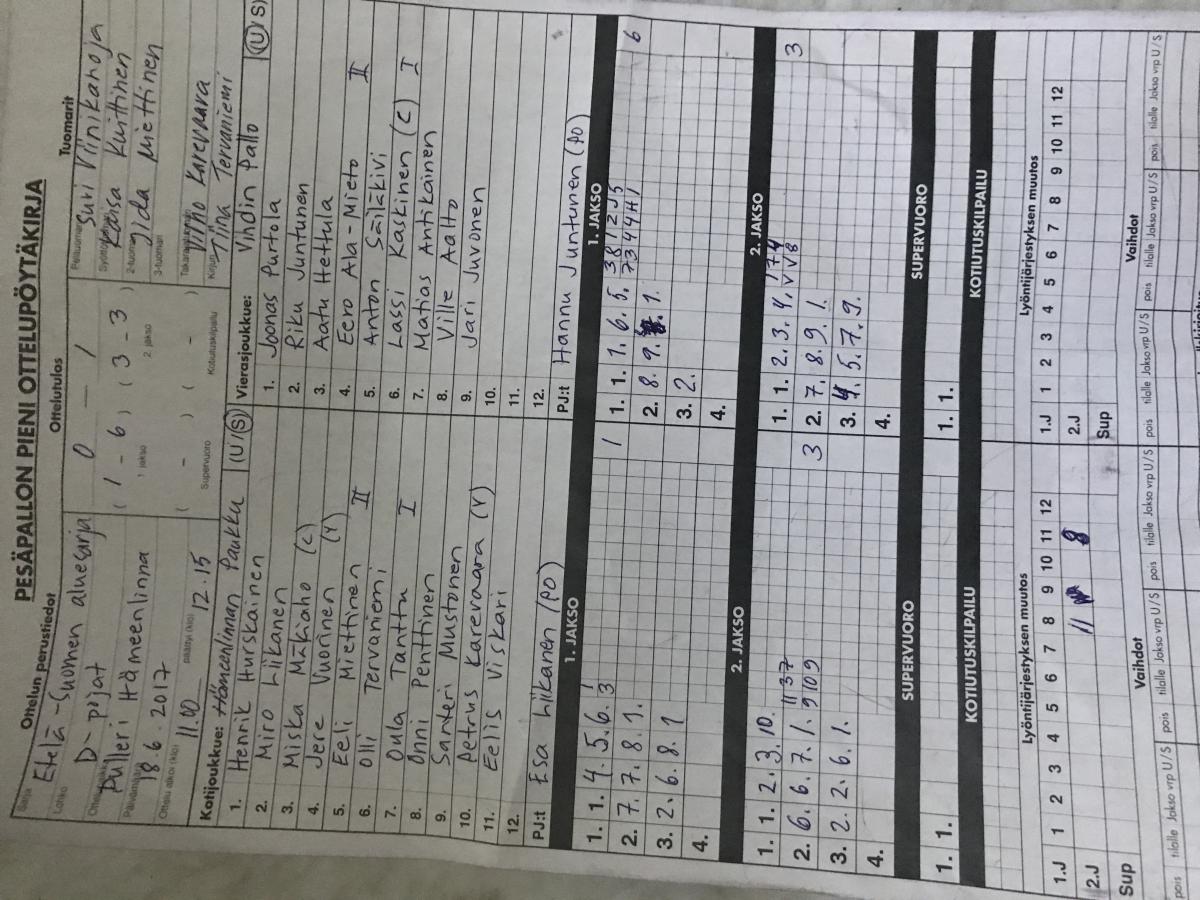 PESÄPALLON PIENI OTTELUPÖYTÄKIRJA
Ottelun perustiedot
Ottelutulos
Tuomarit
Sarja
Etelä-Suomen aluesarja
Lohko
D-pojat
Pulleri Hämeenlinna
Päivämäärä
18.6.2017
Ottelu alkoi (klo)
11.00
päättyi (klo)
12.15
0 – 1
( 1 - 6 ) ( 3 - 3 )
1. jakso
2. jakso
( - ) ( - )
Supervuoro
Kotiutuskilpailu
Pelituomari
Suvi Viinikanoja
Kaisa Kuittinen
2-tuomari
Iida Miettinen
3-tuomari
Vilho Karevaara
Kirjuri
Tiina Tervaniemi
Kotijoukkue: Hämeenlinnan Paukku (U/S)
1. Henrik Hurskainen
2. Miro Liikanen
3. Miska Mäkiaho (C)
4. Jere Vuorinen (Y)
5. Eeli Miettinen
6. Olli Tervaniemi II
7. Oula Tanttu
8. Onni Penttinen I
9. Santeri Mustonen
10. Petrus Karevaara (Y)
11. Eelis Viskari
12.
PJ:t Esa Liikanen (PO)
Vierasjoukkue: Vihdin Pallo (U/S)
1. Joonas Purtola
2. Riku Juntunen
3. Aatu Hettula
4. Eero Ala-Mieto
5. Anton Säiläkivi II
6. Lassi Kaskinen (C)
7. Matias Antikainen I
8. Ville Aalto
9. Jari Juvonen
10.
11.
12.
PJ:t Hannu Juntunen (PO)
1. JAKSO
1. 1. 4. 5. 6. 1 3 1
2. 7. 7. 8. 1.
3. 2. 6. 8. 1
4.
1. JAKSO
1. 1. 1. 6. 5. 6
2. 8. 9. 1.
3. 2.
4.
2. JAKSO
1. 1. 2. 3. 10.
2. 6. 6. 7. 1. 3
3. 2. 2. 6. 1.
4.
2. JAKSO
1. 1. 2. 3. 4. 3
2. 7. 8. 9. 1.
3. 4. 5. 7. 9.
4.
SUPERVUORO
1. 1.
SUPERVUORO
1. 1.
KOTIUTUSKILPAILU
KOTIUTUSKILPAILU
Lyöntijärjestyksen muutos
1.J 1 2 3 4 5 6 7 8 9 10 11 12
2.J 11 8
Sup
Lyöntijärjestyksen muutos
1.J 1 2 3 4 5 6 7 8 9 10 11 12
2.J
Sup
Vaihdot
pois tilalle Jakso vrp U/S pois tilalle Jakso vrp U/S pois tilalle Jakso vrp U/S
Vaihdot
pois tilalle Jakso vrp U/S pois tilalle Jakso vrp U/S pois tilalle Jakso vrp U/S